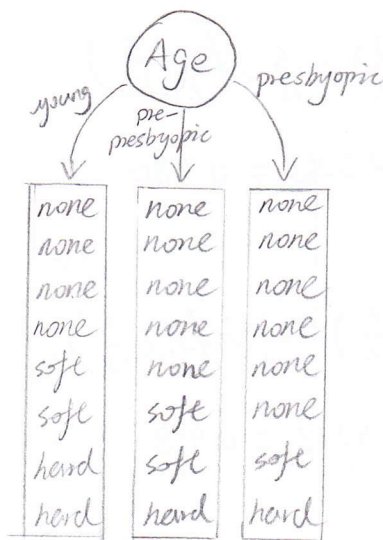 Age
young
pre-
presbyopic
presbyopic
none none none
none none none
none none none
none none none
soft none none
soft soft none
hard soft soft
hard hard hard